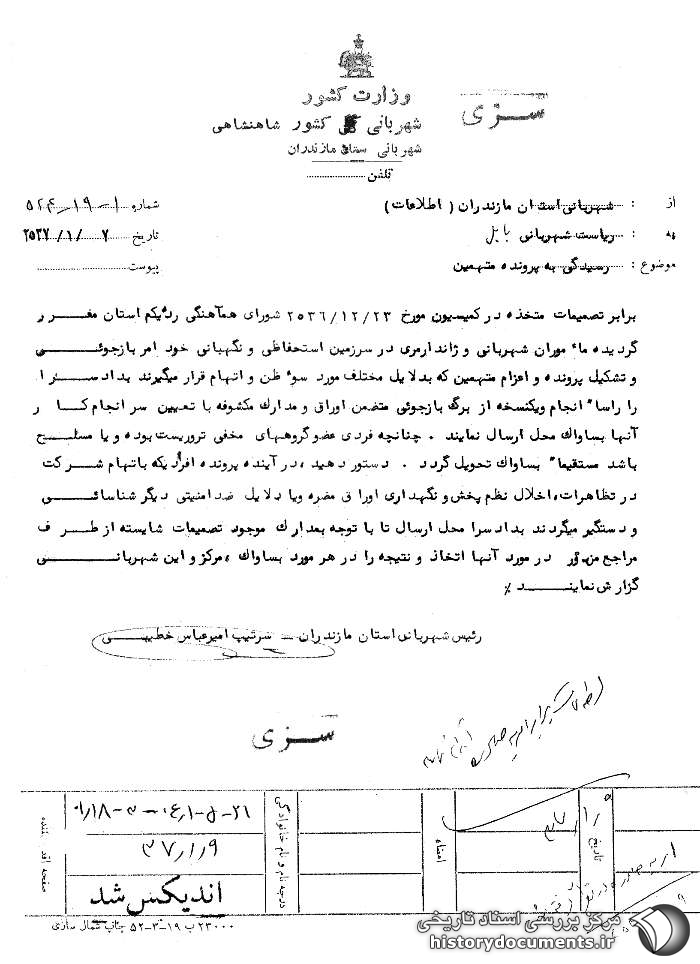 وزارت کشور
سـری
شهربانی کشور شاهنشاهی
شهربانی ستان مازندران
تلفن
از : شهربانی استان مازندران ( اطلاعات )
شماره ۱-۱۹-۵۲۴
به : ریاست شهربانی بابل
تاریخ ۲۵۳۷/۱/۷
موضوع : رسیدگی به پرونده متهمین
پیوست
برابر تصمیمات متخذه در کمیسیون مورخ ۲۵۳۶/۱۲/۲۳ شورای هماهنگی رده یکم استان مقرر
گردیده مأموران شهربانی و ژاندارمری در سرزمین استحفاظی و نگهبانی خود امر بازجوئی
و تشکیل پرونده و اعزام متهمین که بدلایل مختلف مورد سوء ظن و اتهام قرار میگیرند بدادسرا
را راسا" انجام ویکنسخه از برگ بازجوئی متضمن اوراق و مدارک مکشوفه با تعیین سرانجام کار
آنها بساواک محل ارسال نمایند . چنانچه فردی عضو گروههای مخفی تروریست بوده و یا مسلح
باشد مستقیما" بساواک تحویل گردد . دستور دهید ، در آینده پرونده افرادیکه باتهام شرکت
در تظاهرات ، اخلال نظم پخش و نگهداری اوراق مضره ویا دلایل ضدامنیتی دیگر شناسائی
و دستگیر میگردند بدادسرا محل ارسال تا با توجه بمدارک موجود تصمیمات شایسته از طرف
مراجع مزبور در مورد آنها اتخاذ و نتیجه را در هر مورد بساواک ، مرکز و این شهربانی
گزارش نمایند ٪
رئیس شهربانی استان مازندران ــ سرتیپ امیرعباس خطیبی
سـری
تاریخ
امضاء
درجه نام و نام خانوادگی
۳۷/۱/۹
اندیکس شد
۲۳۰۰۰ ب ۱۹-۳-۵۲ چاپ شمال ساری
مرکز بررسی اسناد تاریخی
historydocuments.ir